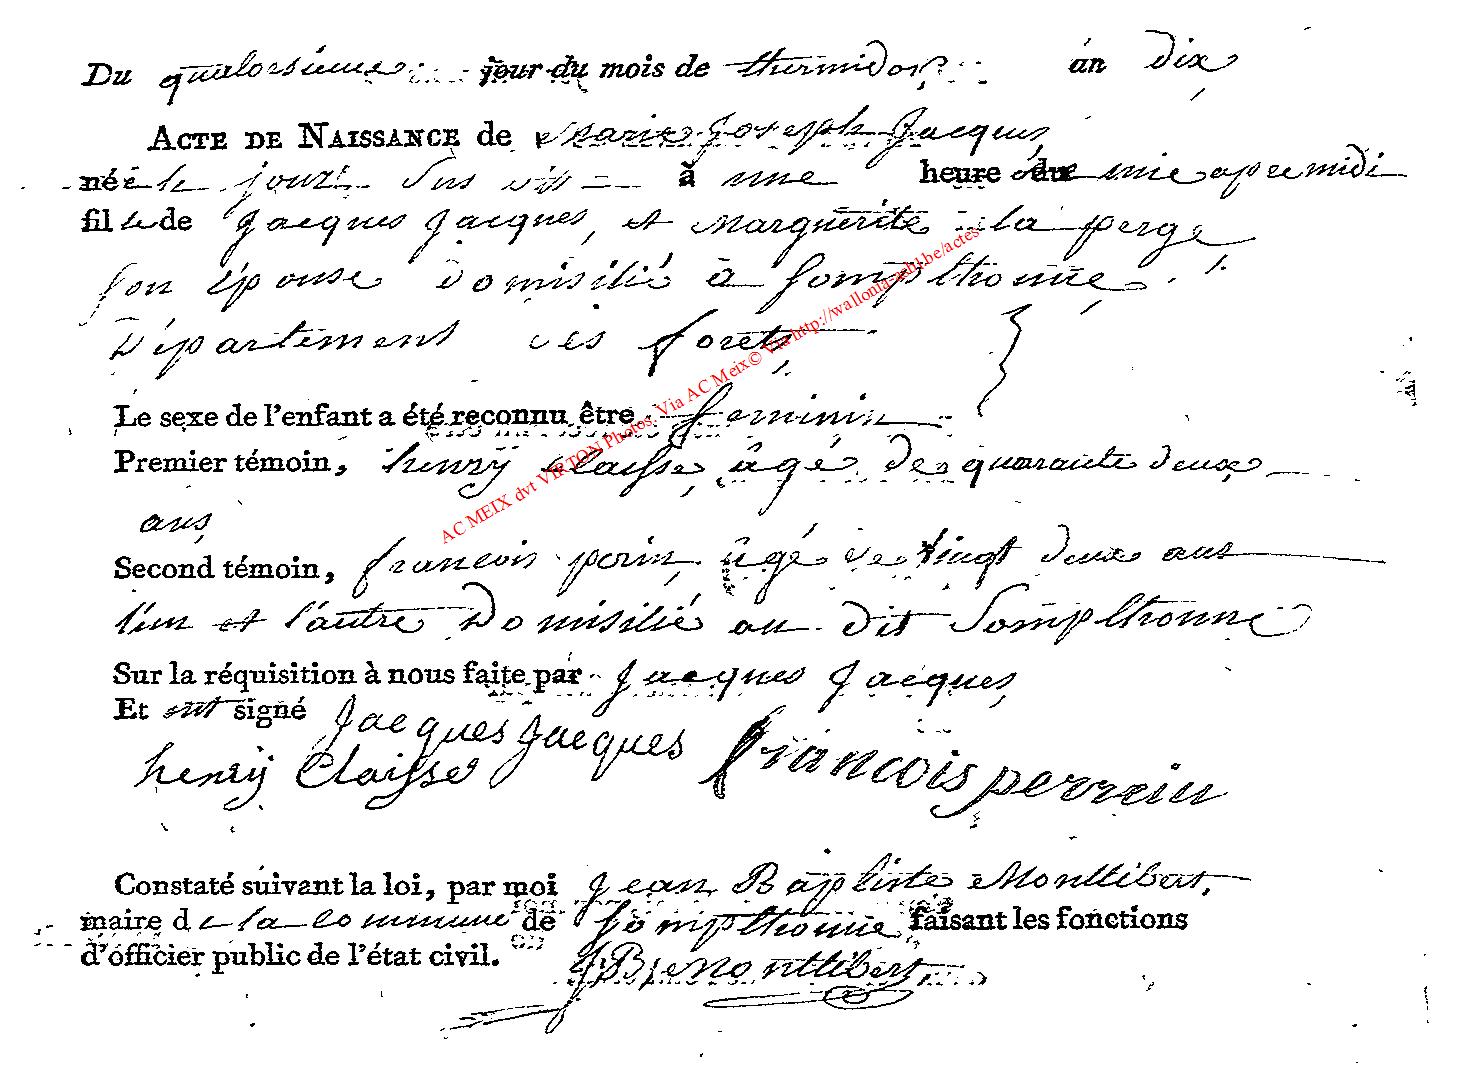 Du quatorsieme jour du mois de thermidor an dix
ACTE DE NAISSANCE de Marie Joseph Jacques
née le jour sus dit à une heure une apre midi
fille de Jacques Jacques, et Marguerite la perge
son épouse domisilié à Sompthonne
Département des forets
Le sexe de l'enfant a été reconnu être feminin
Premier témoin, henry Claisse, âgé de quarante deux
ans,
Second témoin, francois porin, âgé de vingt deux ans
l'un et l'autre Domisilié au dit Sompthonne
Sur la réquisition à nous faite par Jacques Jacques,
Et ont signé Jacques Jacques
henry Claisse francois perrein
Constaté suivant la loi, par moi Jean Baptiste Monttibert,
maire de la commune de Sompthonne faisant les fonctions
d'officier public de l'état civil. JB Monttibert
AC MEIX dvt VIRTON Photos. Via AC Meix© Via http://wallonia-asbl.be/actes